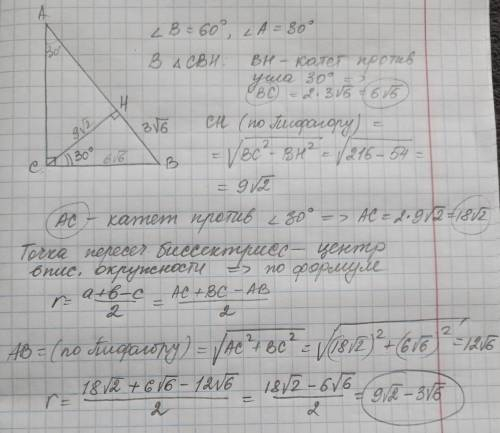 A
30°
H
9√2
3√6
C
30°
6√6
B
∠B = 60°, ∠A = 30°
В △CBH: BH - катет против
угла 30° =>
BC = 2·3√6 = 6√6
CH (по Пифагору) =
= √BC² - BH² = √216 - 54 =
= 9√2
AC - катет против ∠30° => AC = 2·9√2 = 18√2
Точка пересеч биссектрисс - центр
впис. окружности => по формуле
r = a+b-c/2 = AC + BC - AB/2
AB = (по Пифагору) = √AC² + BC² = √(18√2)² + (6√6)² = 12√6
r = 18√2 + 6√6 - 12√6/2 = 18√2 - 6√6/2 = 9√2 - 3√6